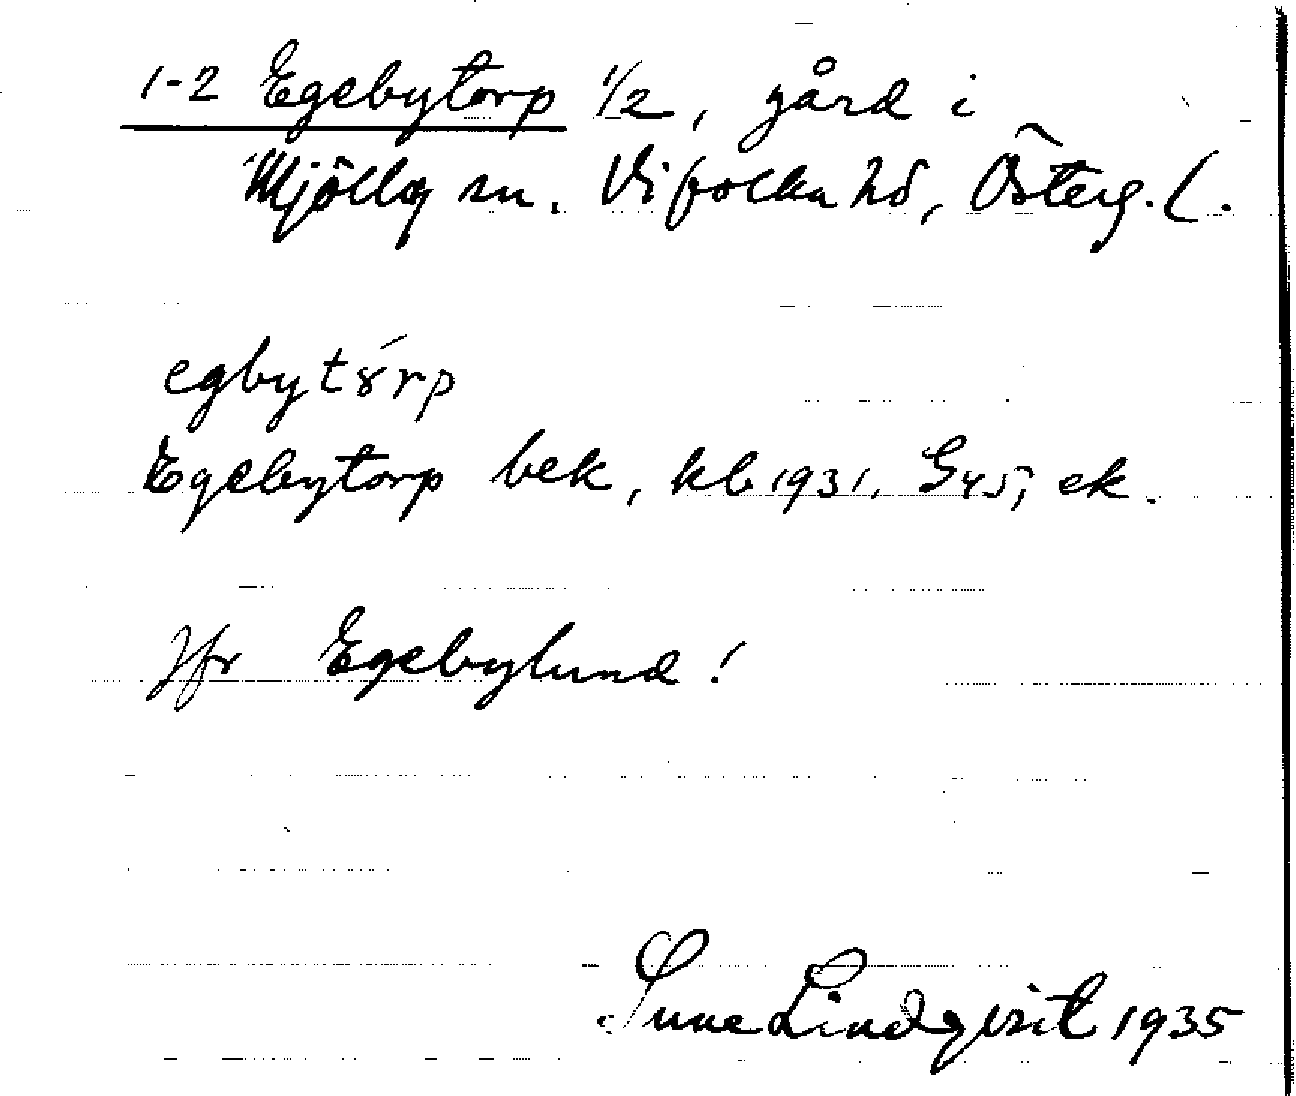 1-2 Egebytorp 1/2, gård i
Mjölby sn. Vifolka hd, Österg. l.
egbytórp
Egebytorp bek, kb 1931, G45, ek.
Jfr Egebylund!
Sune Lindqvist 1935